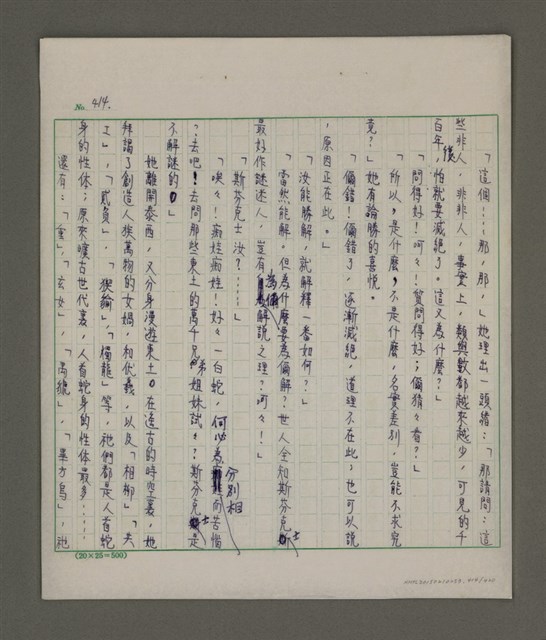 No. 414.
「這個……那、那，」她理出一頭緒：「那請問：這
些非人、非非人，事實上，類與數都越來越少，可見的千
百年後，怕就要滅絕了。這又為什麼？」
「問得好！呵々！質問得好；偏猜々看？」
「所以，是什麼，不是什麼，名實差別，豈能不求究
竟？」她有論勝的喜悅。
「偏錯！偏錯了，逐漸滅絕，道理不在此；也可以說
，原因正在此。」
「汝能勝解，就解釋一番如何？」
「當然能解。但為什麼要為偏解？世人全知斯芬克士
最好作謎迷人，豈有為偏解說之理？呵々！」
「斯芬克士汝？……」
「唉々！痴娃痴娃！好々一白蛇，何必為分別相而苦惱
？去吧！去問那些東土的萬千兄弟姐妹試々？斯芬克士是
不解謎的。」
她離開泰西，又分身漫遊東土。在遠古的時空裏，她
拜謁了創造人族萬物的女媧，和伏羲，以及「相柳」「夫
工」，「貳負」，「猰貐」，「燭龍」等，祂們都是人首蛇
身的性体；原來曠古世代裏，人首蛇身的性体最多……
還有：「
」，「玄女」，「禺䝞」，「畢方鳥」，祂
(20×25=500)